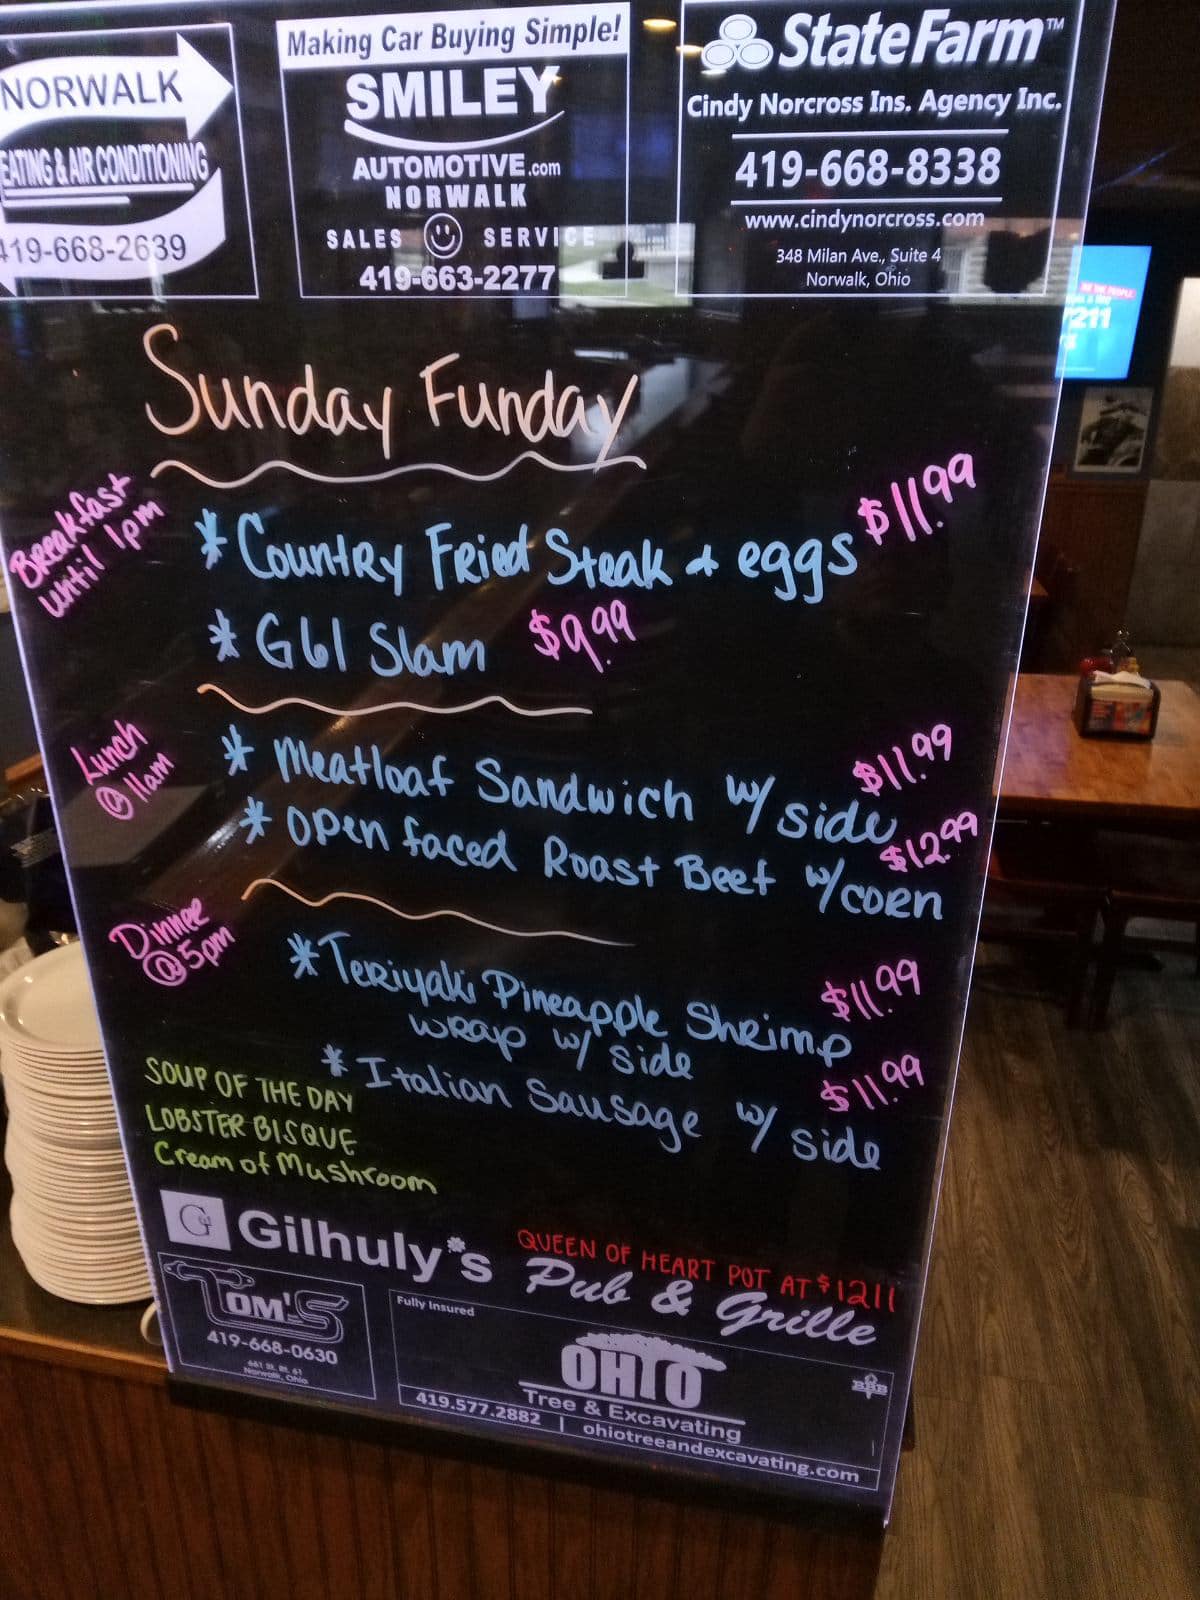 NORWALK
EATING & AIR CONDITIONING
419-668-2639
Making Car Buying Simple!
SMILEY
AUTOMOTIVE.com
NORWALK
SALES SERVICE
419-663-2277
StateFarm™
Cindy Norcross Ins. Agency Inc.
419-668-8338
www.cindynorcross.com
348 Milan Ave., Suite 4
Norwalk, Ohio
7211
Sunday Funday
Breakfast
until 1pm
* Country Fried Steak + eggs $11.99
* G61 Slam $9.99
Lunch
@ 11am
* Meatloaf Sandwich w/ side $11.99
* Open faced Roast Beef w/corn $12.99
Dinner
@ 5pm
* Teriyaki Pineapple Shrimp $11.99
wrap w/ side
* Italian Sausage w/ side $11.99
SOUP OF THE DAY
LOBSTER BISQUE
Cream of Mushroom
G Gilhuly's
QUEEN OF HEART POT AT $1211
Pub & Grille
TOM'S
419-668-0630
661 St. Rt. 61
Norwalk, Ohio
Fully Insured
OHIO
Tree & Excavating
BBB
419.577.2882 | ohiotreeandexcavating.com